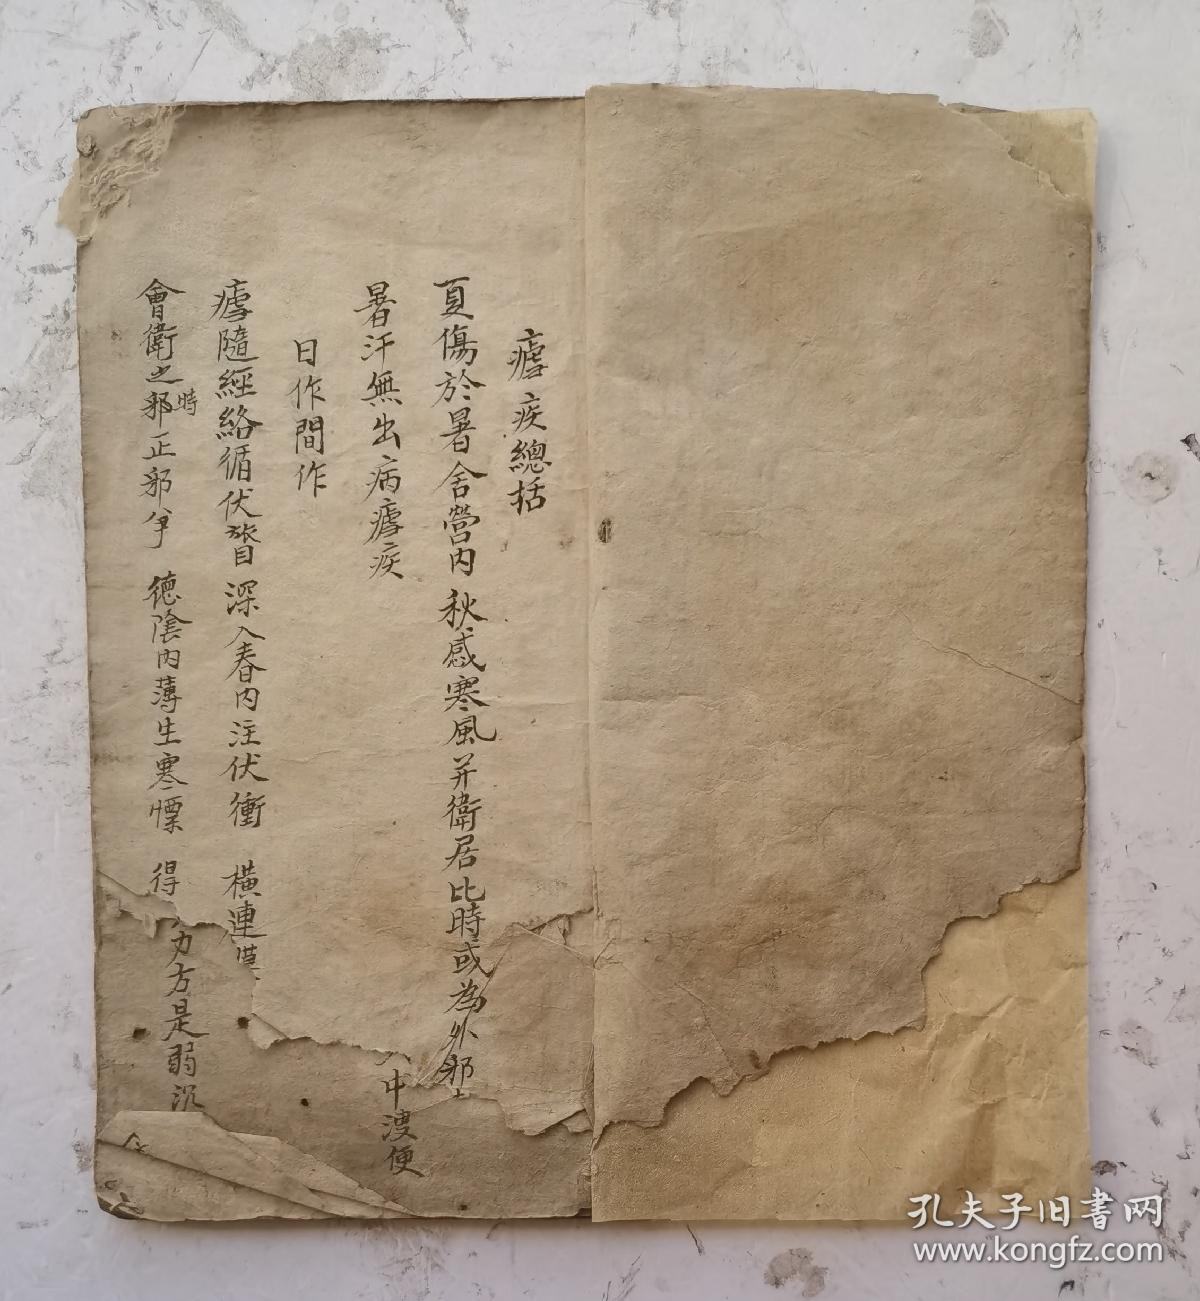 瘧疾總括
夏傷於暑舍營內 秋感寒風并衛居比時或為外邪
暑汗無出病瘧疾
中溲便
日作間作
瘧隨經絡循伏膂深入春內注伏衝 橫連
會衛之時邪正邪爭 德陰內薄生寒慓 得
力方是弱沉
孔夫子旧書网
www.kongfz.com